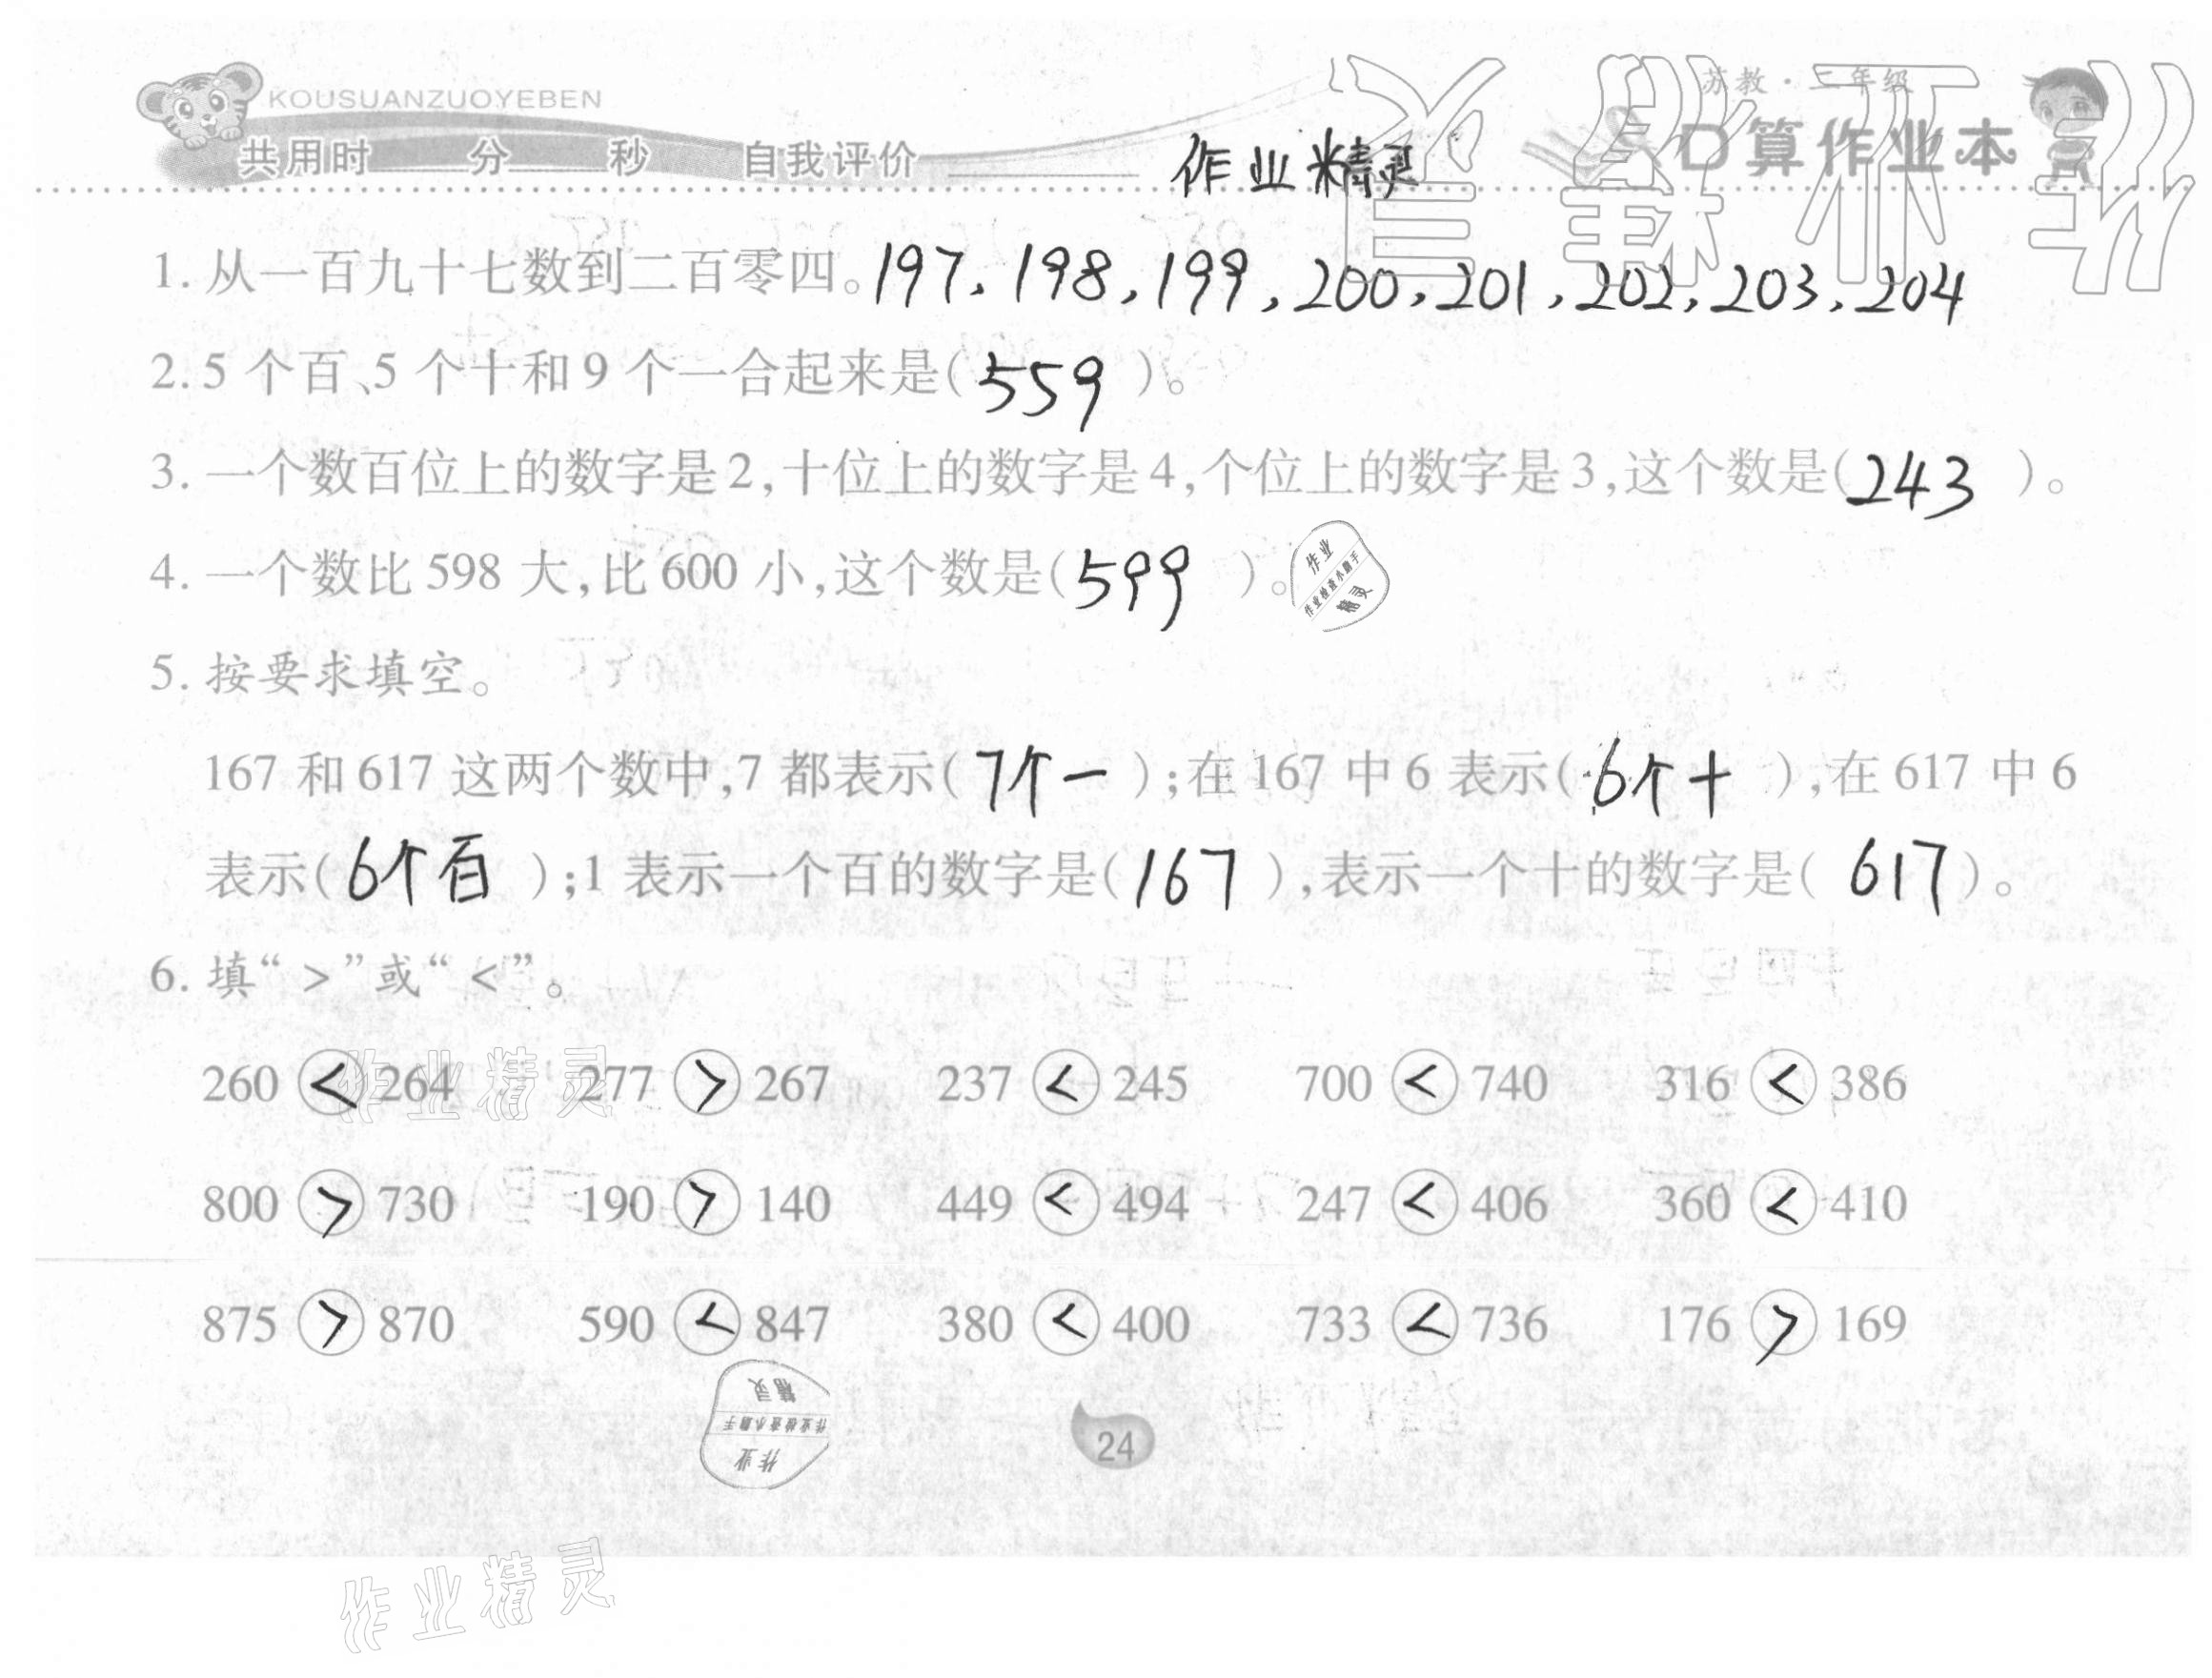 KOUSUANZUOYEBEN
苏教·二年级
共用时 分 秒 自我评价 作业精灵 口算作业本
1. 从一百九十七数到二百零四。197、198,199,200,201,202,203,204
2. 5个百、5个十和9个一合起来是(559)。
3. 一个数百位上的数字是2,十位上的数字是4,个位上的数字是3,这个数是(243)。
4. 一个数比598大,比600小,这个数是(599)。
作业
作业检查小助手
精灵
5. 按要求填空。
167和617这两个数中,7都表示(7个一);在167中6表示(6个十),在617中6
表示(6个百);1表示一个百的数字是(167),表示一个十的数字是(617)。
6. 填“>”或“<”。
260 < 264 277 > 267 237 < 245 700 < 740 316 < 386
作业精灵
800 > 730 190 > 140 449 < 494 247 < 406 360 < 410
875 > 870 590 < 847 380 < 400 733 < 736 176 > 169
作业
作业检查小助手
精灵
24
作业精灵